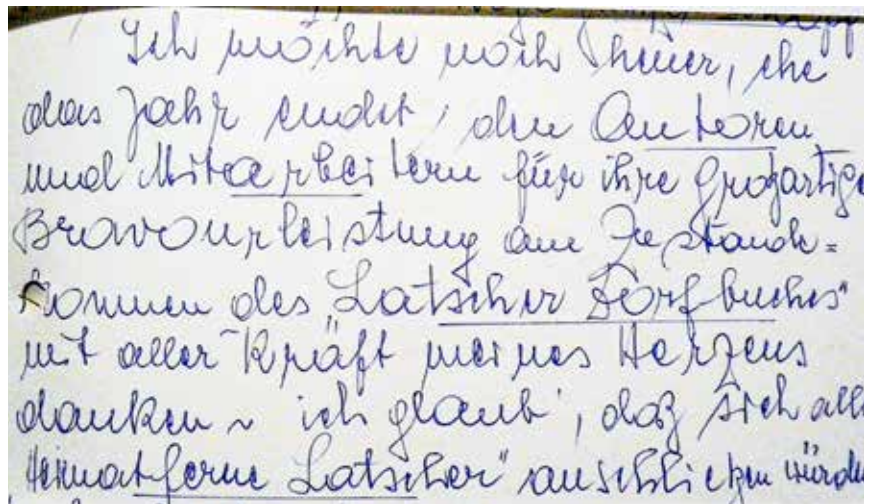 Ich möchte noch heuer, ehe
das Jahr endet, den Autoren
und Mitarbeitern für ihre großartige
Bravourleistung am Zustande=
kommen des „Latscher Dorfbuches"
mit aller Kraft meines Herzens
danken ~ ich glaub', daß sich alle
Heimatferne Latscher" anschließen würden